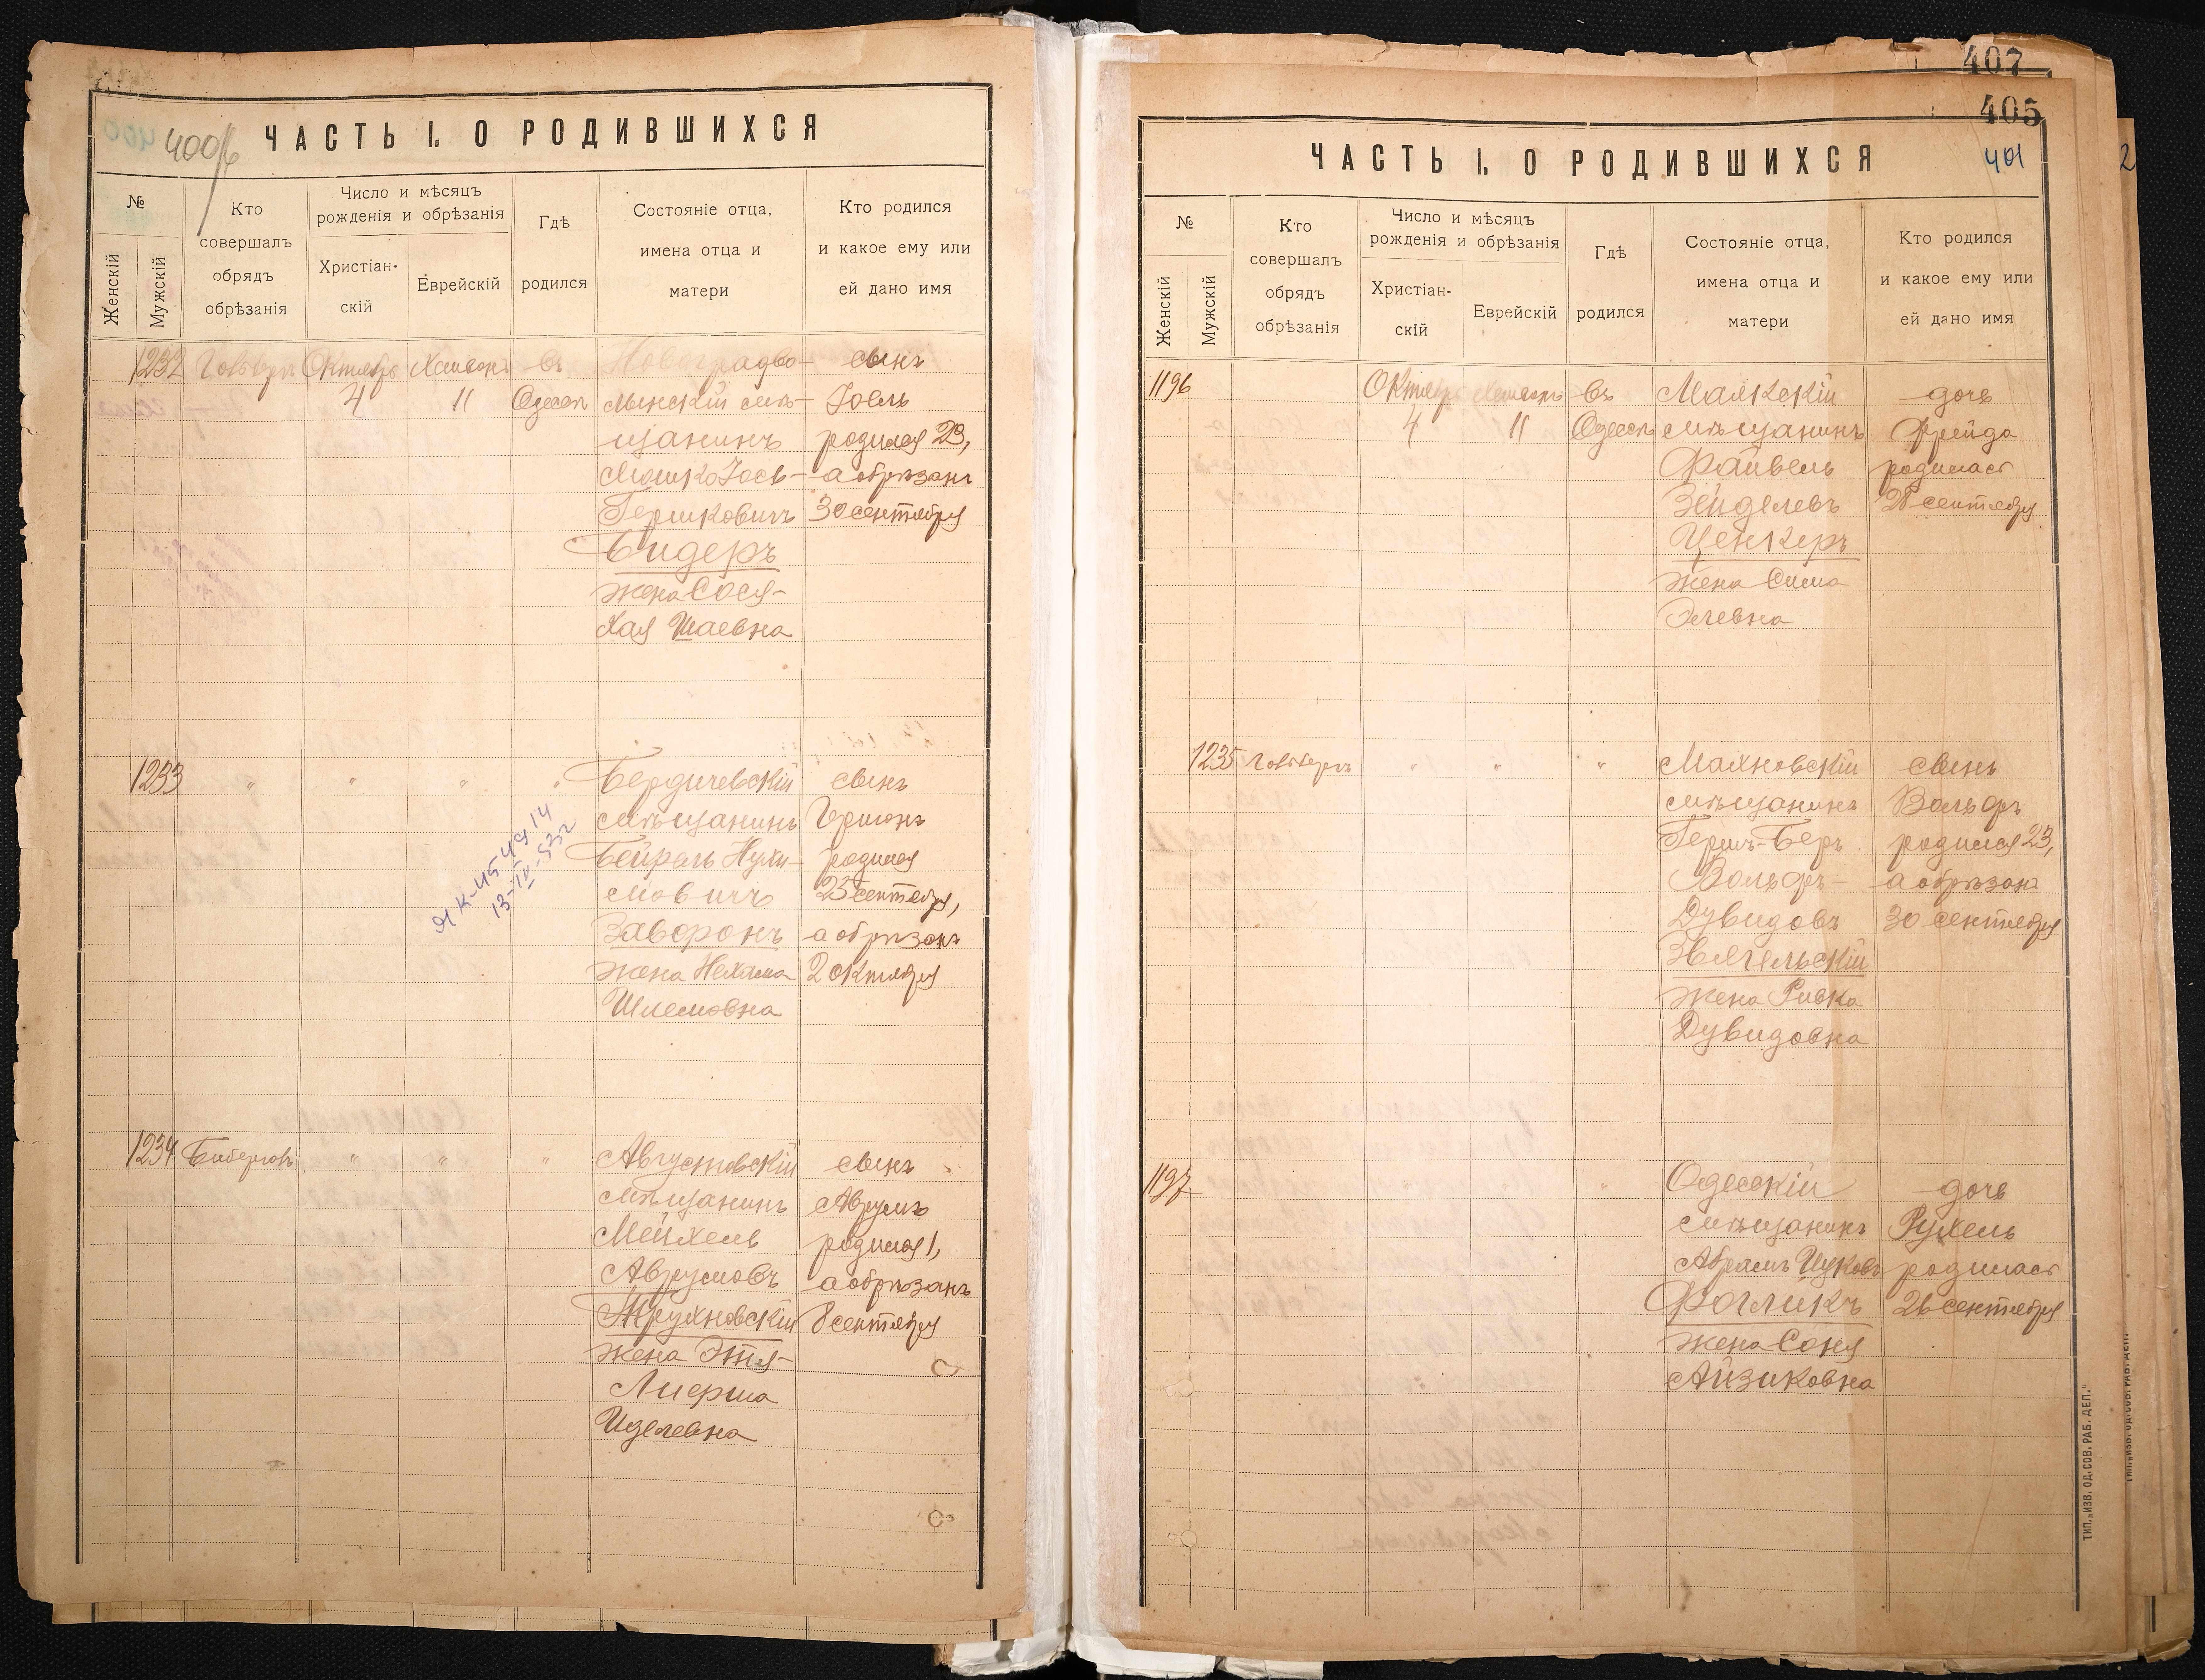 400об
ЧАСТЬ I. О РОДИВШИХСЯ
№
Женскій
Мужскій
Кто
совершалъ
обрядъ
обрѣзанія
Число и мѣсяцъ
рожденія и обрѣзанія
Христіан-
скій
Еврейскій
Гдѣ
родился
Состояніе отца,
имена отца и
матери
Кто родился
и какое ему или
ей дано имя
1232
Октябрь
4
Хешвонъ
11
въ
Одессѣ
Новоградво-
лынскій мѣ-
щанинъ
Мошко Іось-
Гершковичъ
Бидеръ
жена Сося-
Хая Шаевна
сынъ
Іоель
родился 23,
а обрѣзанъ
30 сентября
1233
"
"
"
"
Бердичевскій
мѣщанинъ
Бейрахъ Нухи-
мовичъ
Заворонъ
жена Нехама
Шлемовна
сынъ
Гершонъ
родился
25 сентября,
а обрѣзанъ
2 октября
ЯК-454914
13-IV-53г
1234
"
"
"
Августовскій
мѣщанинъ
Мейхель
Аврумовъ
Трухновскій
жена Этя-
Иделевна
сынъ
Аврумъ
родился 1,
а обрѣзанъ
8 сентября
407
405
401
2
ЧАСТЬ I. О РОДИВШИХСЯ
№
Женскій
Мужскій
Кто
совершалъ
обрядъ
обрѣзанія
Число и мѣсяцъ
рожденія и обрѣзанія
Христіан-
скій
Еврейскій
Гдѣ
родился
Состояніе отца,
имена отца и
матери
Кто родился
и какое ему или
ей дано имя
1196
Октябрь
4
Хешвонъ
11
въ
Одессѣ
Маякскій
мѣщанинъ
Файвель
Зейделевъ
Ценкеръ
жена Сима
Элевна
дочь
Фрейда
родилась
28 сентября
1235
"
"
"
Махновскій
мѣщанинъ
Гершъ-Беръ
Вольфъ-
Дувидовъ
Звягельскій
жена Ривка
Дувидовна
сынъ
Вольфъ
родился 23,
а обрѣзанъ
30 сентября
1197
"
Одесскій
мѣщанинъ
Абрамъ Ицковъ
Фогликъ
жена Соня
Айзиковна
дочь
Рухель
родилась
26 сентября
ТИП. „ИЗВ. ОД. СОВ. РАБ. ДЕП."